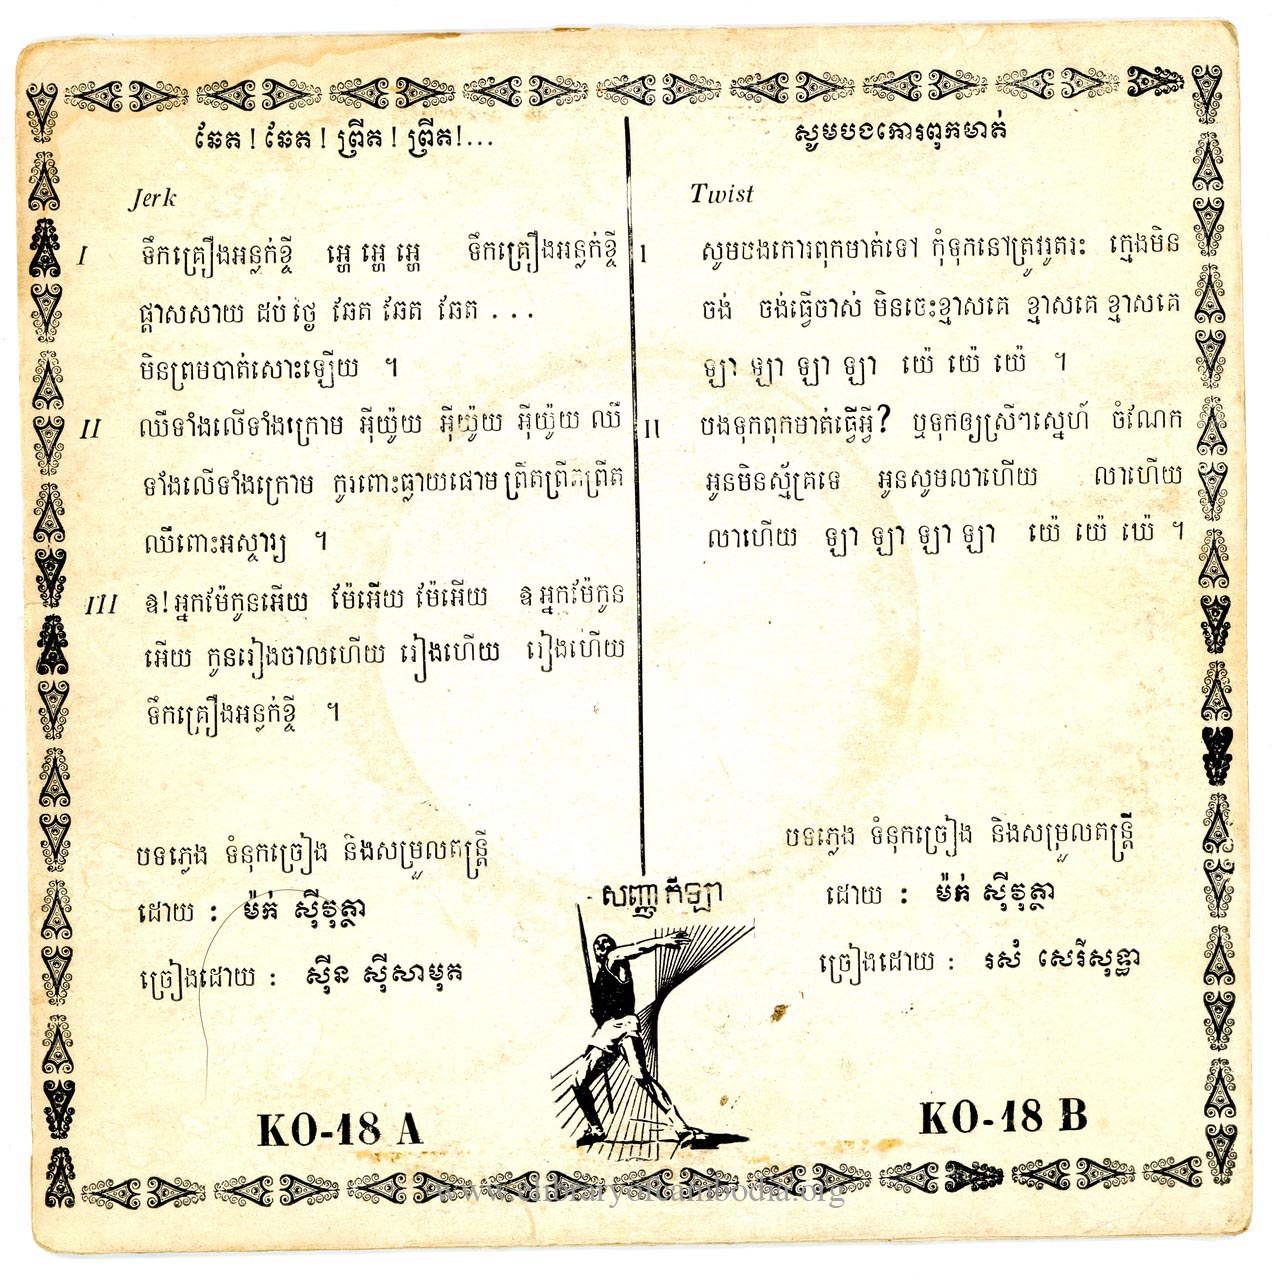 ឆែត ! ឆែត ! ព្រឺត ! ព្រឺត!...
Jerk
I ទឹកគ្រឿងអន្លក់ខ្ចី អ្ហេ អ្ហេ អ្ហេ ទឹកគ្រឿងអន្លក់ខ្ចី
ផ្ដាសសាយ ដប់ថ្ងៃ ឆែត ឆែត ឆែត . . .
មិនព្រមបាត់សោះឡើយ ។
II ឈឺទាំងលើទាំងក្រោម អ៊ីយ៉ូយ អ៊ីយ៉ូយ អ៊ីយ៉ូយ ឈឺ
ទាំងលើទាំងក្រោម កូរពោះធ្លាយផោម ព្រឺតព្រឺតព្រឺត
ឈឺពោះអស្ចារ្យ ។
III ឱ!អ្នកម៉ែកូនអើយ ម៉ែអើយ ម៉ែអើយ ឱអ្នកម៉ែកូន
អើយ កូនរៀងចាលហើយ រៀងហើយ រៀងហើយ
ទឹកគ្រឿងអន្លក់ខ្ចី ។
បទភ្លេង ទំនុកច្រៀង និងសម្រួលតន្ត្រី
ដោយ : ម៉ក់ ស៊ីវុត្ថា
ច្រៀងដោយ : ស៊ីន ស៊ីសាមុត
KO-18 A
សូមបងកោរពុកមាត់
Twist
I សូមបងកោរពុកមាត់ទៅ កុំទុកនៅត្រូវរូតរះ ក្មេងមិន
ចង់ ចង់ធ្វើចាស់ មិនចេះខ្មាសគេ ខ្មាសគេ ខ្មាសគេ
ឡា ឡា ឡា ឡា យ៉េ យ៉េ យ៉េ ។
II បងទុកពុកមាត់ធ្វើអ្វី? ឬទុកឲ្យស្រីៗស្នេហ៍ ចំណែក
អូនមិនស្ម័គ្រទេ អូនសូមលាហើយ លាហើយ
លាហើយ ឡា ឡា ឡា ឡា យ៉េ យ៉េ យ៉េ ។
បទភ្លេង ទំនុកច្រៀង និងសម្រួលតន្ត្រី
ដោយ : ម៉ក់ ស៊ីវុត្ថា
ច្រៀងដោយ : រស់ សេរីសុទ្ធា
KO-18 B
សញ្ញា កីឡា